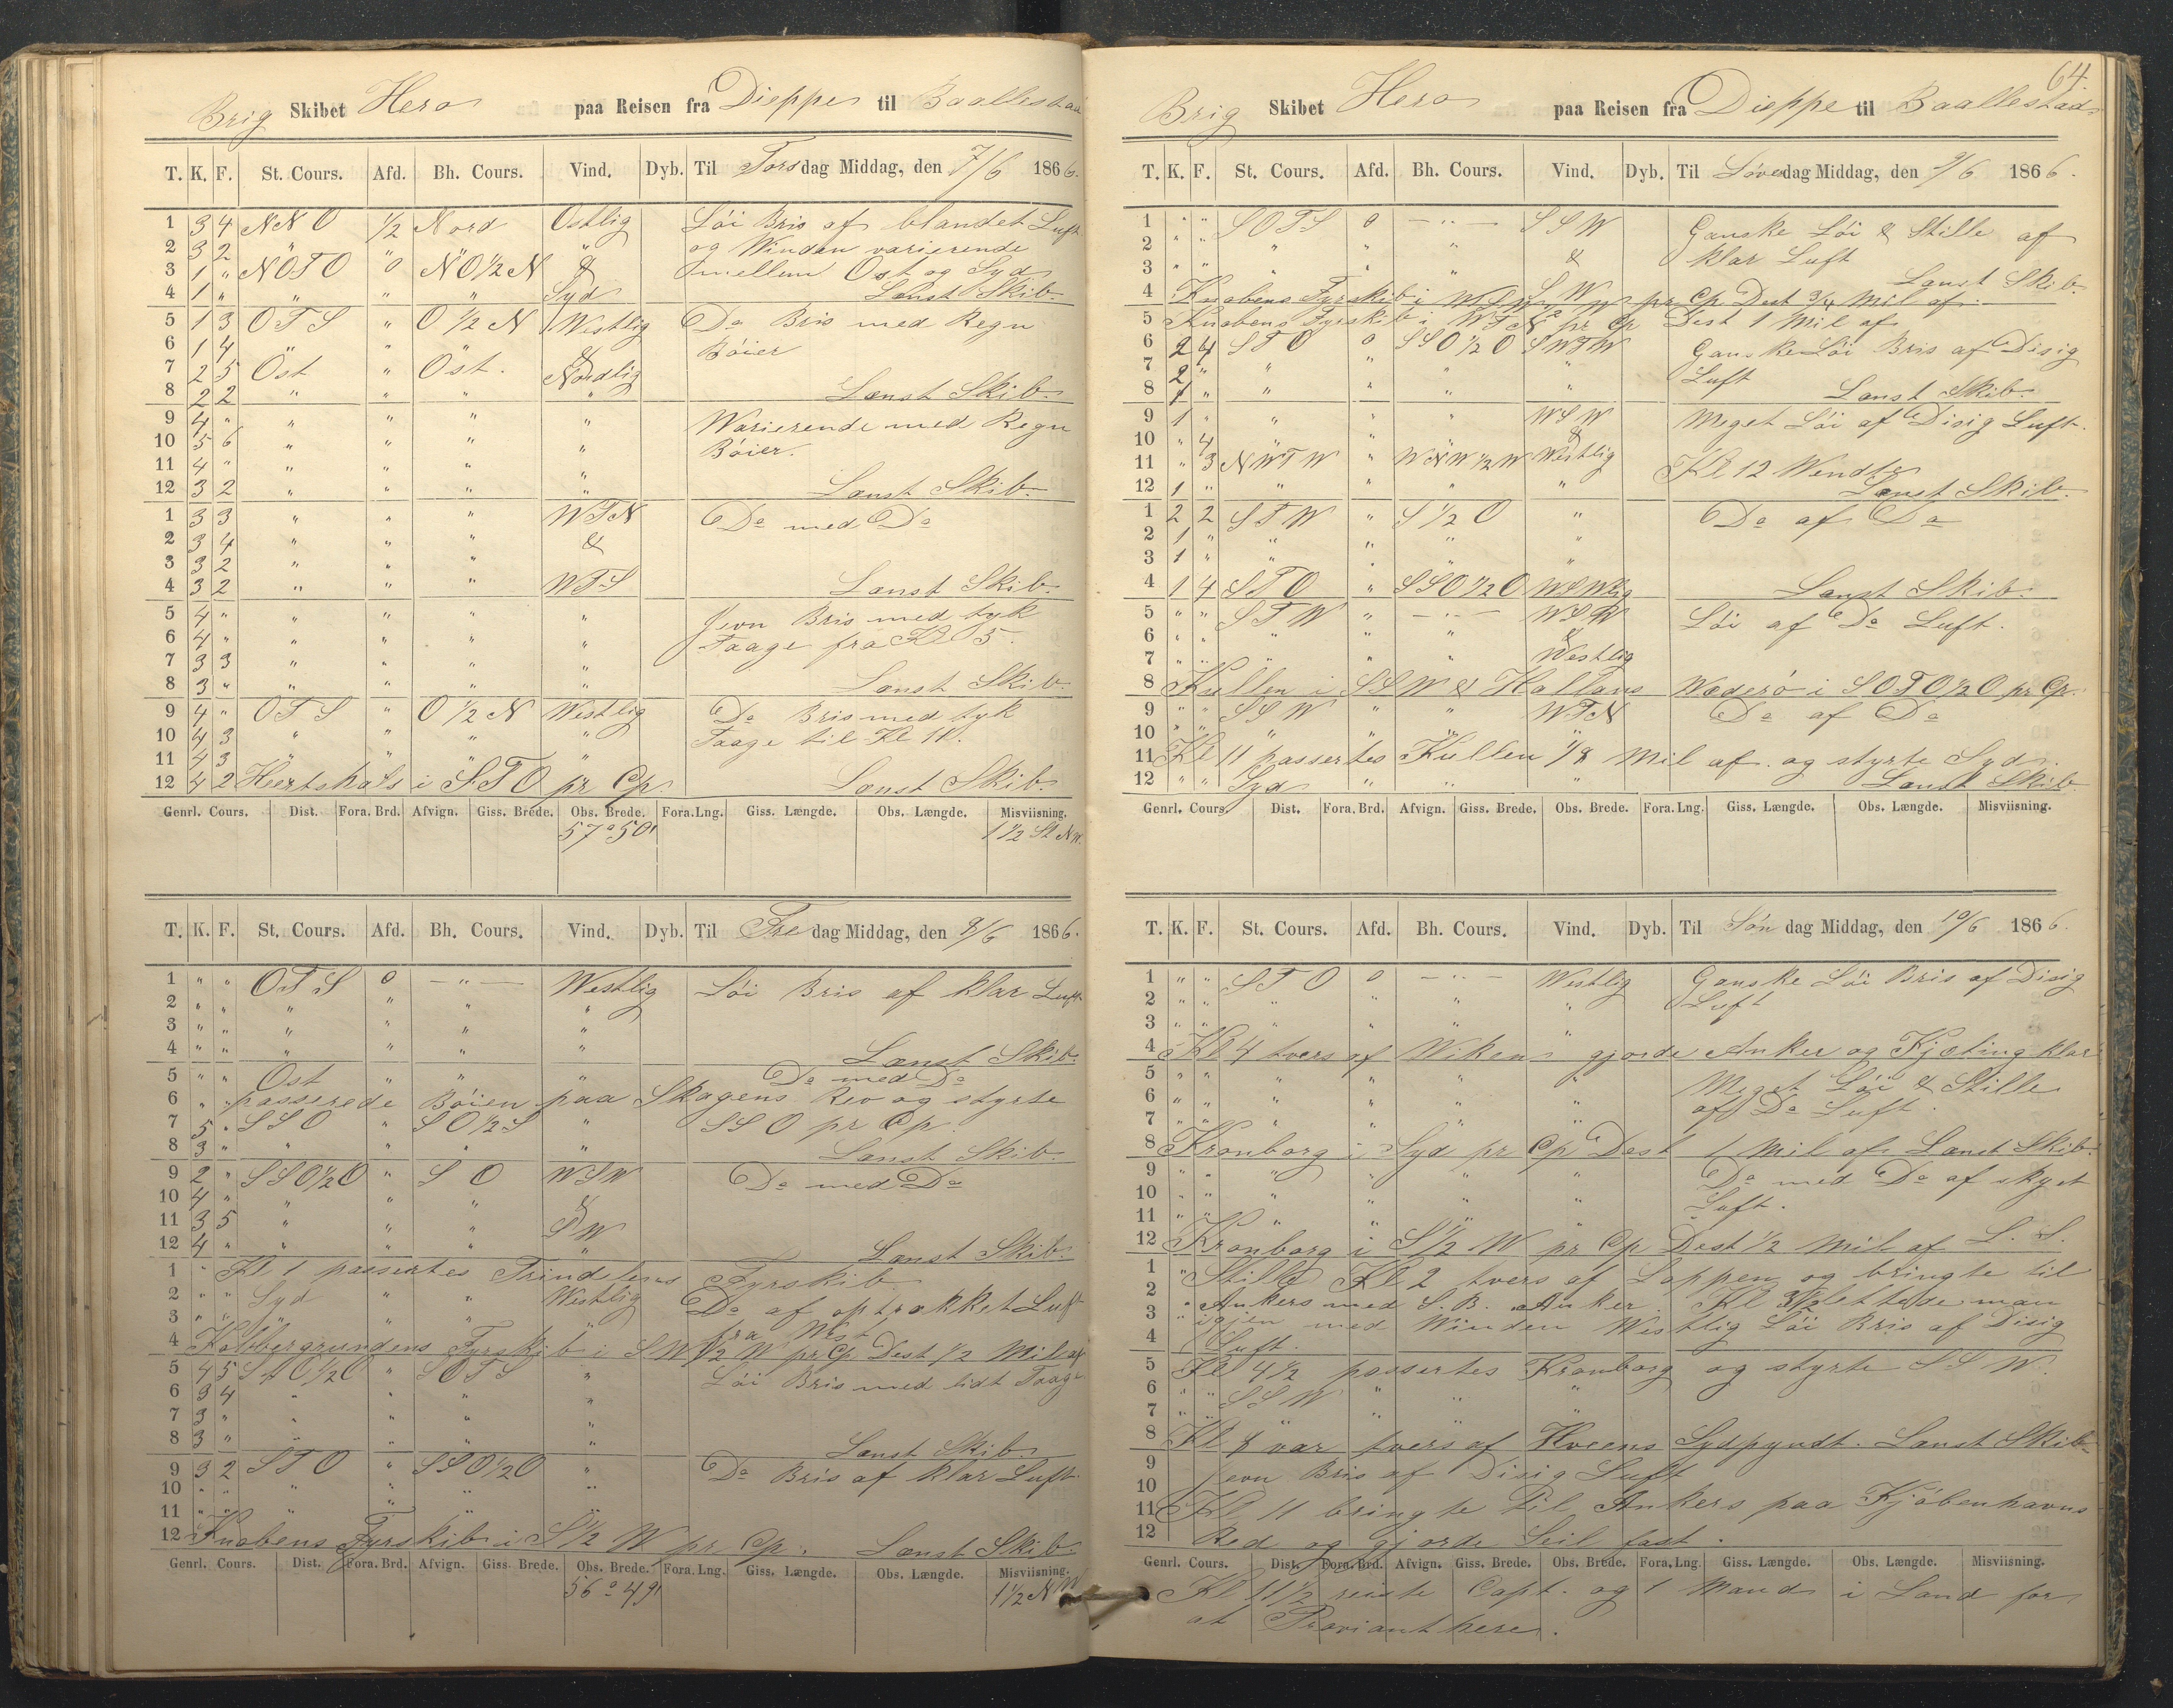 Brig Skibet Hero paa Reisen fra Dieppe til Baallestad
T. K. F. St. Cours. Afd. Bh. Cours. Vind. Dyb. Til Torsdag Middag, den 7/6 1866.
1 3 4 NNO 1/2 Nord Ostlig Løi Bris af blandet Luft
2 3 2 " " " " og Winden varierende
3 1 " NOTO 0 NO1/2N & mellem Ost og Syd
4 1 " " " " Syd Lænst Skib.
5 1 3 OTS " O 1/2 N Westlig Do Bris med Regn
6 1 4 " " " & Bøier
7 2 5 Ost " Ost. Nordlig
8 2 2 " " " " Lænst Skib.
9 4 " " " " " Warierende med Regn
10 5 6 " " " " Bøier.
11 4 " " " " "
12 3 2 " " " " Lænst Skib.
1 3 3 " " " WTN Do med Do
2 3 4 " " " &
3 3 2 " " "
4 3 2 " " " WTS Lænst Skib.
5 4 " " " " " Jevn Bris med tyk
6 4 " " " " " Taage fra Kl 5.
7 3 3 " " " "
8 3 " " " " Lænst Skib.
9 4 " OTS " O 1/2 N Westlig Do Bris med tyk
10 4 3 " " " " Taage til Kl 11.
11 4 3 " " " "
12 4 2 Heertshals i STO pr Cp. Lænst Skib.
Genrl. Cours. Dist. Fora. Brd. Afvign. Giss. Brede. Obs. Brede. Fora. Lng. Giss. Længde. Obs. Længde. Misviisning.
57° 50' 1 1/2 St NW.
T. K. F. St. Cours. Afd. Bh. Cours. Vind. Dyb. Til Fredag Middag, den 8/6 1866.
1 " " OTS 0 — " — Westlig Løi Bris af klar Luft
2 " " " " " "
3 " " " " " "
4 " " " " " " Lænst Skib.
5 " " Ost " " " Do med Do
6 " " passerede Bøien paa Skagens Rev og styrte
7 5 " SSO " SO1/2S " SSO pr Cp.
8 3 " " " " " Lænst Skib.
9 2 " SSO1/2O " SO WSW Do med Do
10 4 " " " " &
11 3 5 " " " SW
12 4 " " " " " Lænst Skib.
1 " Kl 1 passertes Trindelens Fyrskib.
2 " " Syd " " Westlig Do af optrækket Luft
3 " " " " " " fra West
4 Kobbergrundens Fyrskib i SW1/2W pr Cp Dest 1/2 Mil af
5 4 5 SSO1/2O " SOTS " Løi Bris med lidt Taage
6 3 4 " " " "
7 3 " " " " "
8 3 " " " " " Lænst Skib.
9 3 2 STO " SSO1/2O " Do Bris af klar Luft.
10 " " " " " "
11 " " " " " "
12 Knobens Fyrskib i S1/2W pr Cp. Lænst Skib.
Genrl. Cours. Dist. Fora. Brd. Afvign. Giss. Brede. Obs. Brede. Fora. Lng. Giss. Længde. Obs. Længde. Misviisning.
56° 49' 1 1/2 NW
64.
Brig Skibet Hero paa Reisen fra Dieppe til Baallestad
T. K. F. St. Cours. Afd. Bh. Cours. Vind. Dyb. Til Løverdag Middag, den 9/6 1866.
1 " " SOTS 0 — " — SSW Ganske Løi & Stille af
2 " " " " " klar Luft
3 " " " " " & Lænst Skib.
4 Knobens Fyrskib i pr Cp Dest 3/4 Mil af.
5 Knobens Fyrskib i WTN pr Cp Dest 1 Mil af
6 2 4 STO 0 SSO1/2O SWTW Ganske Løi Bris af Disig
7 2 " " " " " Luft
8 1 " " " " " Lænst Skib.
9 1 " " " " WSW Meget Løi af Disig Luft.
10 " 4 " " " &
11 " 3 NWTW " WNW1/2W Westlig Kl 12 Wendte
12 1 " " " " " Lænst Skib.
1 2 2 STW " S1/2O " Do af Do
2 1 " " " " "
3 1 " " " "
4 1 4 STO " SSO1/2O WSWlig Lænst Skib.
5 " " STW " — " — WSW Løi af Do Luft.
6 " " " " " &
7 " " " " " Westlig
8 Kullen i SSW & Hallans Wæderø i SOTO1/2O pr Cp.
9 " " SSW " " WTN Do af Do
10 " " " " " "
11 Kl 11 passertes Kullen 1/8 Mil af. og styrte Syd.
12 " " Syd " " Lænst Skib
Genrl. Cours. Dist. Fora. Brd. Afvign. Giss. Brede. Obs. Brede. Fora. Lng. Giss. Længde. Obs. Længde. Misviisning.
T. K. F. St. Cours. Afd. Bh. Cours. Vind. Dyb. Til Søndag Middag, den 10/6 1866.
1 " " STO 0 — " — Westlig Ganske Løi Bris af Disig
2 " " " " " " Luft
3 " " " " " "
4 Kl 4 tvers af Wiken gjorde Anker og Kjæting klar
5 " " " " " " Meget Løi & Stille
6 " " " " " " af Do Luft.
7 " " " " " "
8 Kronborg i Syd pr Cp Dest 1 Mil af Lænst Skib.
9 " " " " " " Do med Do af skyet
10 " " " " " " Luft.
11 " " " " " "
12 Kronborg i S1/2W pr Cp Dest 1/2 Mil af L. S.
1 " Stille Kl 2 tvers af Lappen og bringte til
2 " Ankers med S. B. Anker. Kl 3 1/2 lettede man
3 " igjen med Winden Westlig Løi Bris af Disig
4 Luft.
5 Kl 4 1/2 passertes Kronborg og styrte SSW.
6 " " SSW " " "
7 " " " " "
8 Kl 8 var tvers af Hveens Sydpyndt. Lænst Skib.
9 Jevn Bris af Disig Luft
10
11 Kl 11 bringte til Ankers paa Kjøbenhavns
12 Red og gjorde Seil fast.
Genrl. Cours. Dist. Fora. Brd. Afvign. Giss. Brede. Obs. Brede. Fora. Lng. Giss. Længde. Obs. Længde. Misviisning.
Kl 11 1/2 reiste Capt. og 1 Mand i Land for
at Provianthere.